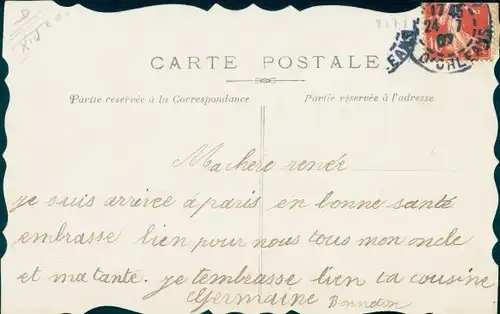 CARTE POSTALE
Partie réservée à la Correspondance
Partie réservée à l'adresse
17 45
24 - 7
07
D'ORLEANS
Ma chere renée
je suis arrivée à paris en bonne santé
embrasse bien pour nous tous mon oncle
et ma tante. je t'embrasse bien ta cousine
Germaine